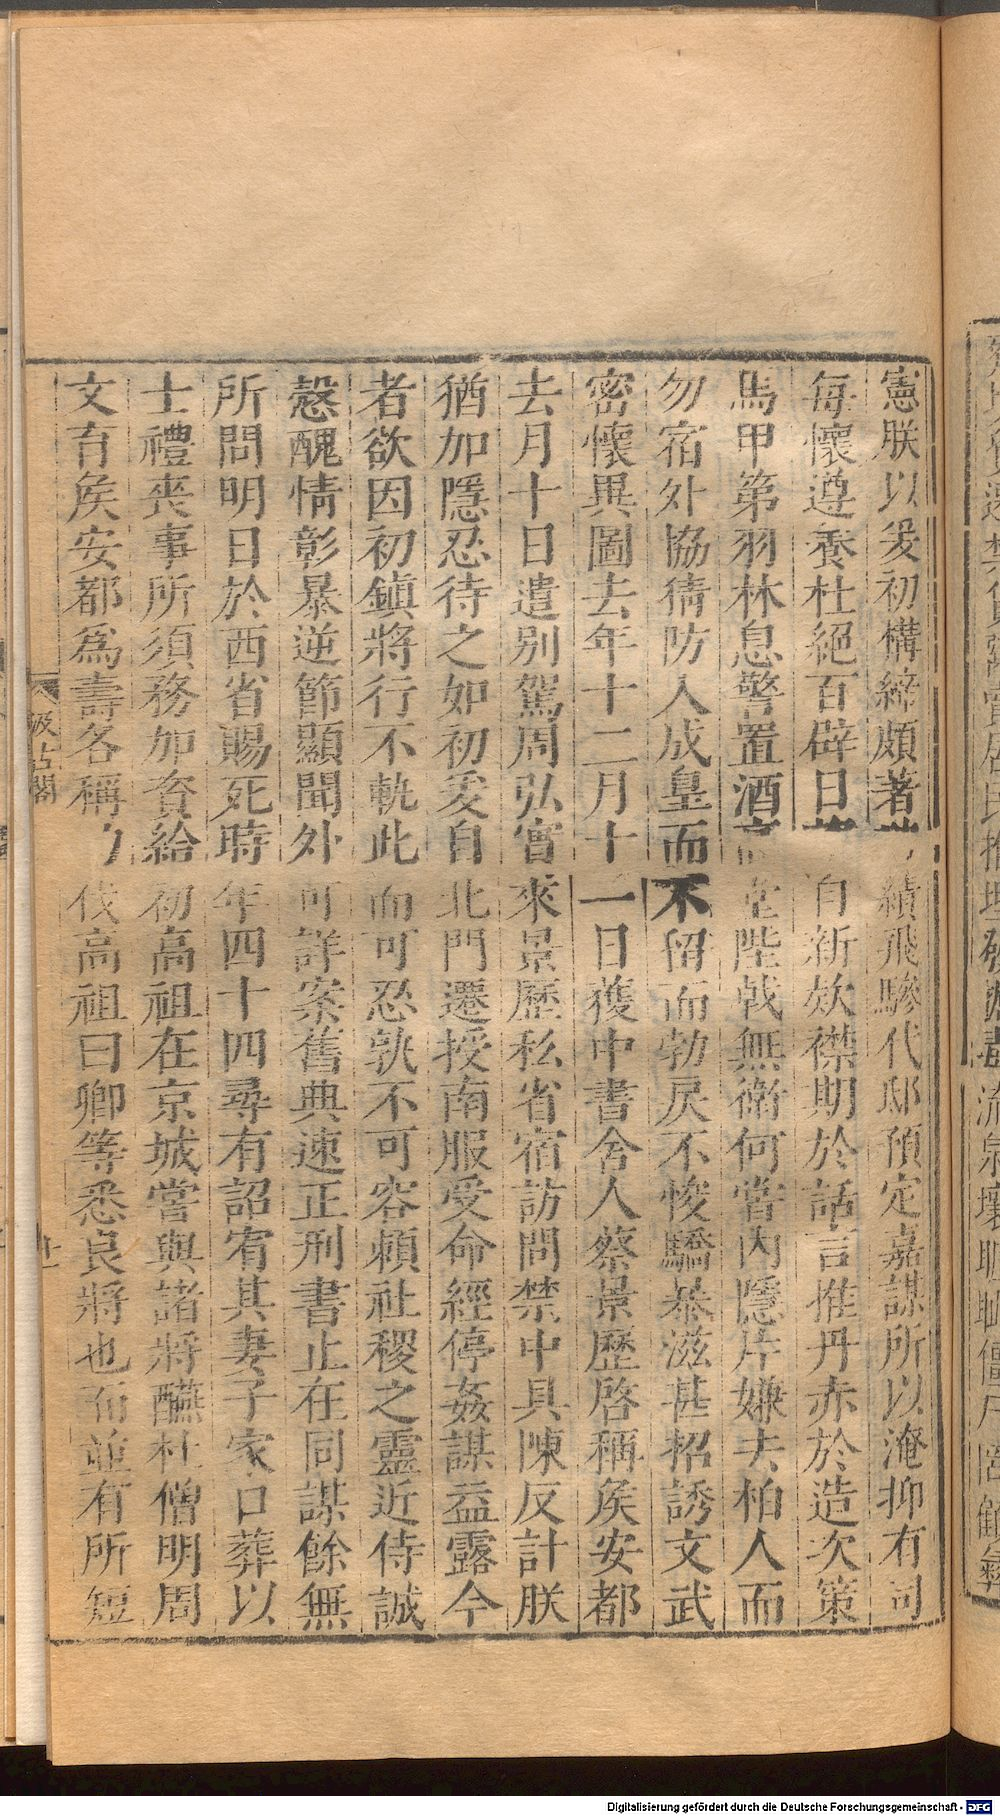 憲朕以爰初構締頗著 績飛驂代邸預定嘉謀所以淹抑有司
每懷遵養杜絕百辟日 自新欸襟期於話言推丹赤於造次策
馬甲第羽林息警置酒高堂陛戟無衛何當內隱片嫌去柏人而
勿宿外協猜防入成皇而不留而勃戾不悛驕暴滋甚招誘文武
密懷異圖去年十二月十一日獲中書舍人蔡景歷啓稱矦安都
去月十日遣別駕周弘實來景歷私省宿訪問禁中具陳反計朕
猶加隱忍待之如初爰自北門遷授南服受命經停姦謀益露今
者欲因初鎮將行不軌此而可忍孰不可容賴社稷之靈近侍誠
慤醜情彰暴逆節顯聞外可詳案舊典速正刑書止在同謀餘無
所問明日於西省賜死時年四十四尋有詔宥其妻子家口葬以
士禮喪事所須務加資給初高祖在京城嘗與諸將醼杜僧明周
文育矦安都爲壽各稱功伐高祖曰卿等悉良將也而並有所短
汲古閣
Digitalisierung gefördert durch die Deutsche Forschungsgemeinschaft - DFG